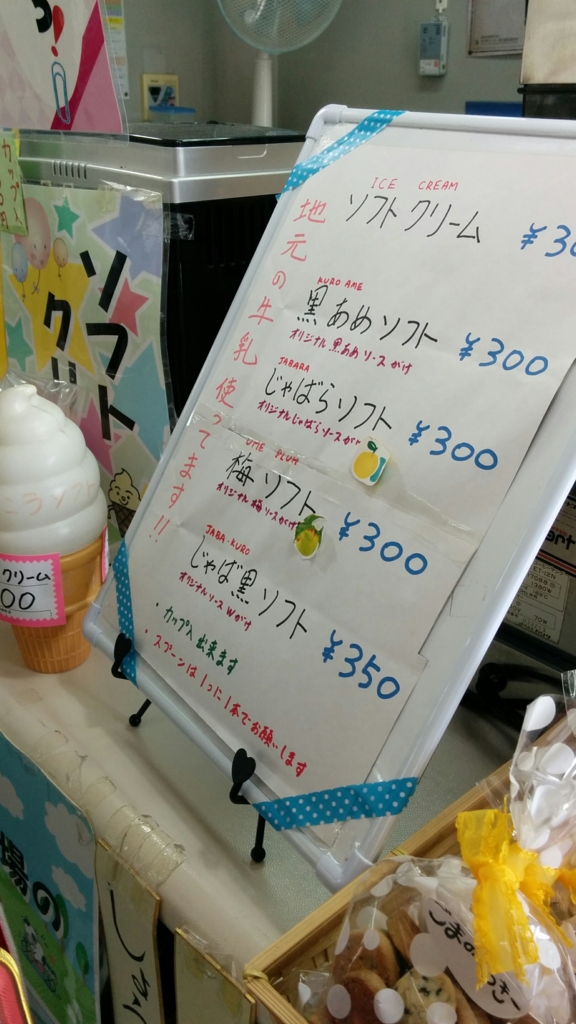 ICE CREAM
ソフトクリーム
地元の牛乳使ってます!!
KURO AME
黒あめソフト ¥300
オリジナル黒あめソースがけ
JABARA
じゃばらソフト ¥300
オリジナルじゃばらソースがけ
UME PLUM
梅ソフト ¥300
オリジナル梅ソースがけ
JABA-KURO
じゃば黒ソフト ¥350
オリジナルソースWがけ
・カップ入出来ます
・スプーンは1つに1本でお願いします
ソフト
クリーム